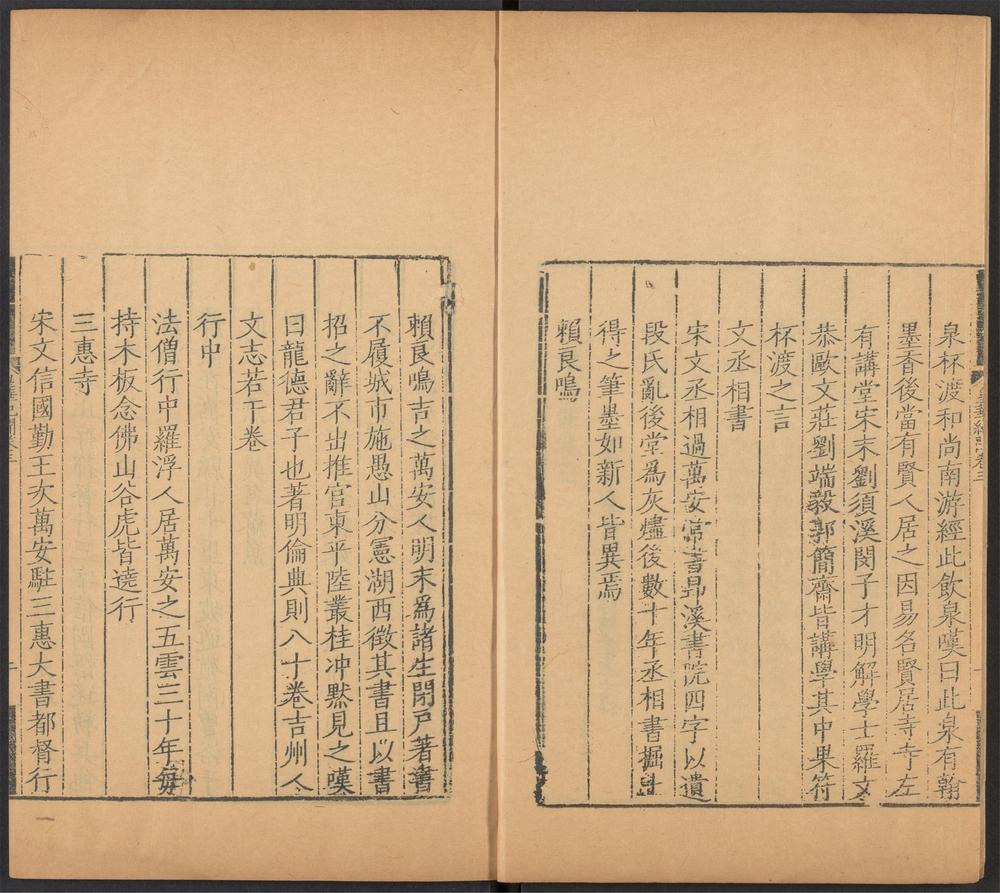 泉杯渡和尚南游經此飲泉嘆曰此泉有翰
墨香後當有賢人居之因易名賢居寺寺左
有講堂宋末劉須溪閔子才明解學士羅文
恭歐文莊劉端毅郭簡齋皆講學其中果符
杯渡之言
文丞相書
宋文丞相過萬安常書昂溪書院四字以遺
段氏亂後堂爲灰燼後數十年丞相書掘土
得之筆墨如新人皆異焉
賴良鳴
賴良鳴吉之萬安人明末爲諸生閉戸著書
不履城市施愚山分憲湖西徵其書且以書
招之辭不出推官東平陸叢桂冲黙見之嘆
曰龍德君子也著明倫典則八十卷吉州人
文志若干卷
行中
法僧行中羅浮人居萬安之五雲三十年毎
持木板念佛山谷虎皆遶行
三惠寺
宋文信國勤王次萬安駐三惠大書都督行